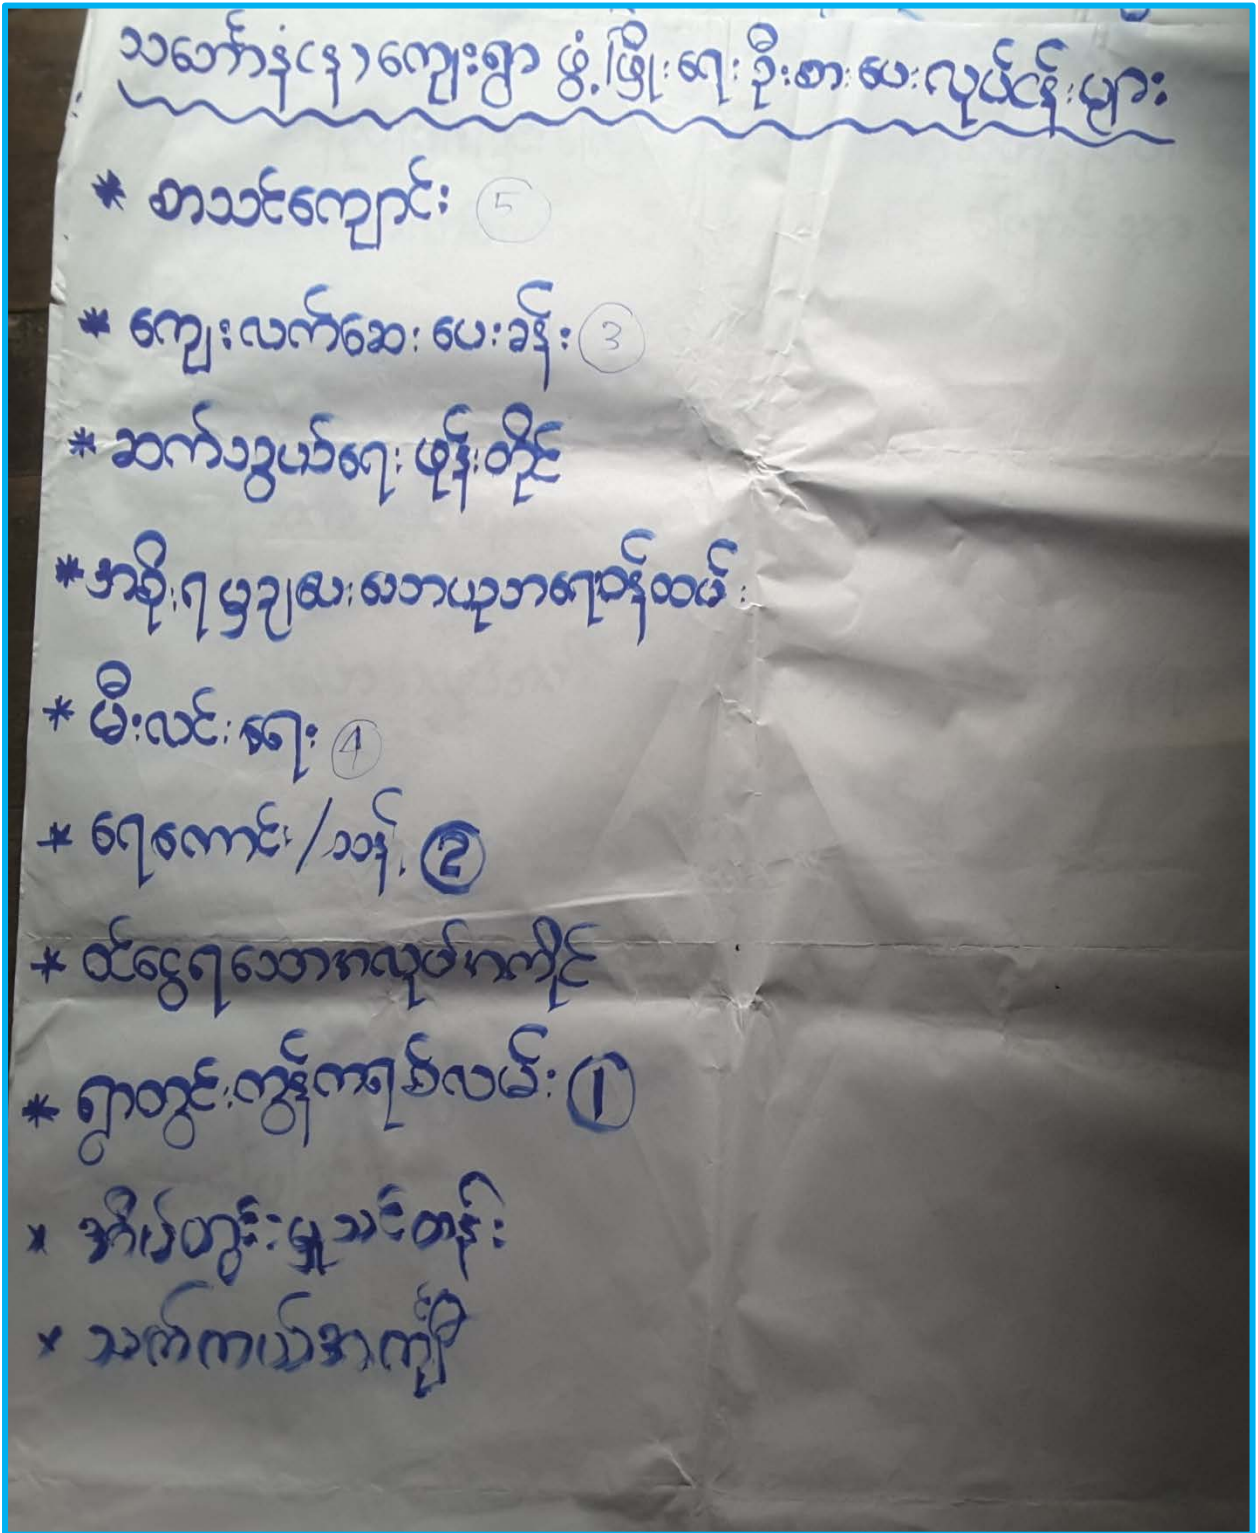 သင်္ဘောနံ(န)ကျေးရွာ ဖွံ့ဖြိုးရေး ဦးစားပေးလုပ်ငန်းများ
* စာသင်ကျောင်း ⑤
* ကျေးလက်ဆေးပေးခန်း ③
* ဆက်သွယ်ရေး ဖုန်းတိုင်
* အစိုးရ
* မီးလင်းရေး ④
* ရေကောင်း/သန့် ②
* ဝင်ငွေရသောအလုပ်အကိုင်
* ရွာတွင်းကွန်ကရစ်လမ်း ①
* အိမ်တွင်းမှုသင်တန်း
* သက်ကယ်အင်္ကျီ